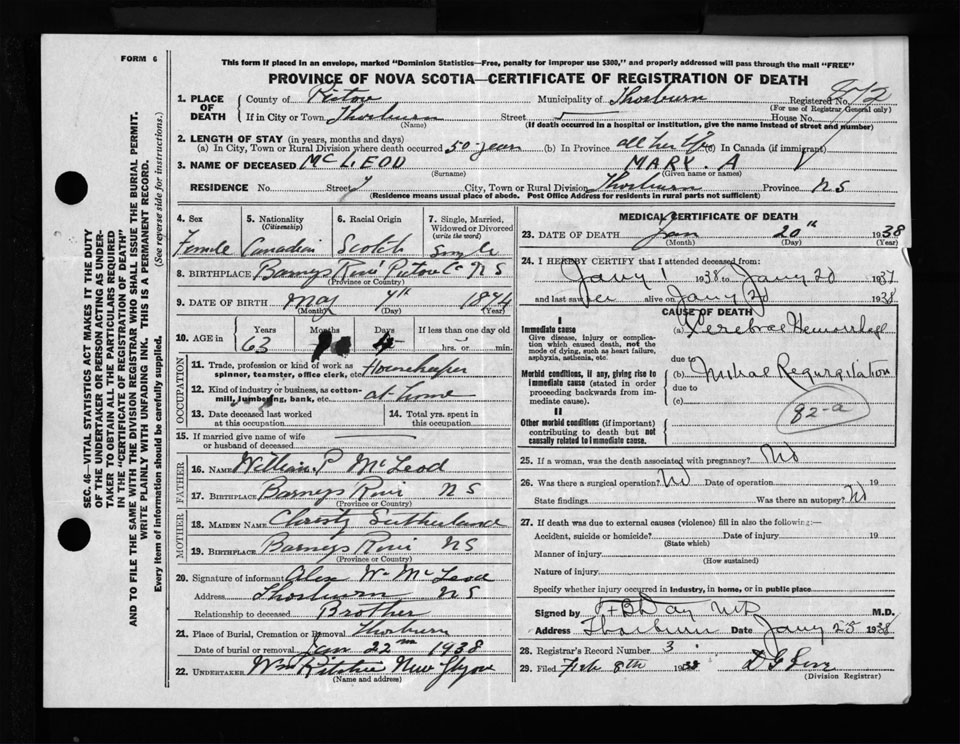 FORM 6
This form if placed in an envelope, marked "Dominion Statistics—Free, penalty for improper use $300," and properly addressed will pass through the mail "FREE"
PROVINCE OF NOVA SCOTIA—CERTIFICATE OF REGISTRATION OF DEATH
1. PLACE OF DEATH
County of Pictou Municipality of Thorburn Registered No.
(For use of Registrar General only)
If in City or Town Thorburn Street House No.
(Name) (If death occurred in a hospital or institution, give the name instead of street and number)
2. LENGTH OF STAY (in years, months and days)
(a) In City, Town or Rural Division where death occurred 50 years (b) In Province all her life (c) In Canada (if immigrant)
3. NAME OF DECEASED McLEOD MARY. A
(Surname) (Given name or names)
RESIDENCE No. Street City, Town or Rural Division Thorburn Province NS
(Residence means usual place of abode. Post Office Address for residents in rural parts not sufficient)
4. Sex Female
5. Nationality (Citizenship) Canadian
6. Racial Origin Scotch
7. Single, Married, Widowed or Divorced (write the word) Single
8. BIRTHPLACE Barneys River Pictou Co NS
(Province or Country)
9. DATE OF BIRTH May 7th 1874
(Month) (Day) (Year)
10. AGE in Years Months Days If less than one day old
63 hrs. or min.
OCCUPATION
11. Trade, profession or kind of work as spinner, teamster, office clerk, etc. Housekeeper
12. Kind of industry or business, as cotton-mill, lumbering, bank, etc. at home
13. Date deceased last worked at this occupation
14. Total yrs. spent in this occupation
15. If married give name of wife or husband of deceased
FATHER
16. NAME William P McLeod
17. BIRTHPLACE Barneys River NS
(Province or Country)
MOTHER
18. MAIDEN NAME Christy Sutherland
19. BIRTHPLACE Barneys River NS
(Province or Country)
20. Signature of informant Alex W McLeod
Address Thorburn NS
Relationship to deceased Brother
21. Place of Burial, Cremation or Removal Thorburn
Date of burial or removal Jan 22nd 1938
22. UNDERTAKER Wm Ritchie New Glasgow
(Name and address)
MEDICAL CERTIFICATE OF DEATH
23. DATE OF DEATH Jan 20th 1938
(Month) (Day) (Year)
24. I HEREBY CERTIFY that I attended deceased from:
Jany 1 1938 to Jany 20 1937
and last saw her alive on Jany 20 1938
CAUSE OF DEATH
I
Immediate cause (a) Cerebral Hemorrhage
Give disease, injury or complication which caused death, not the mode of dying, such as heart failure, asphyxia, asthenia, etc.
due to
Morbid conditions, if any, giving rise to immediate cause (stated in order proceeding backwards from immediate cause).
(b) Mitral Regurgitation
due to
(c)
82-a
II
Other morbid conditions (if important) contributing to death but not causally related to immediate cause.
25. If a woman, was the death associated with pregnancy? No
26. Was there a surgical operation? No Date of operation 19
State findings Was there an autopsy? No
27. If death was due to external causes (violence) fill in also the following:—
Accident, suicide or homicide? Date of injury 19
(State which)
Manner of injury
(How sustained)
Nature of injury
Specify whether injury occurred in industry, in home, or in public place
Signed by Day MD M.D.
Address Thorburn Date Jany 25 1938
28. Registrar's Record Number 3
29. Filed Feb 8th 1938
(Division Registrar)
SEC. 46—VITAL STATISTICS ACT MAKES IT THE DUTY
OF THE UNDERTAKER OR PERSON ACTING AS UNDER-
TAKER TO OBTAIN ALL THE PARTICULARS REQUIRED
IN THE "CERTIFICATE OF REGISTRATION OF DEATH"
AND TO FILE THE SAME WITH THE DIVISION REGISTRAR WHO SHALL ISSUE THE BURIAL PERMIT.
WRITE PLAINLY WITH UNFADING INK. THIS IS A PERMANENT RECORD.
Every item of information should be carefully supplied. (See reverse side for instructions.)